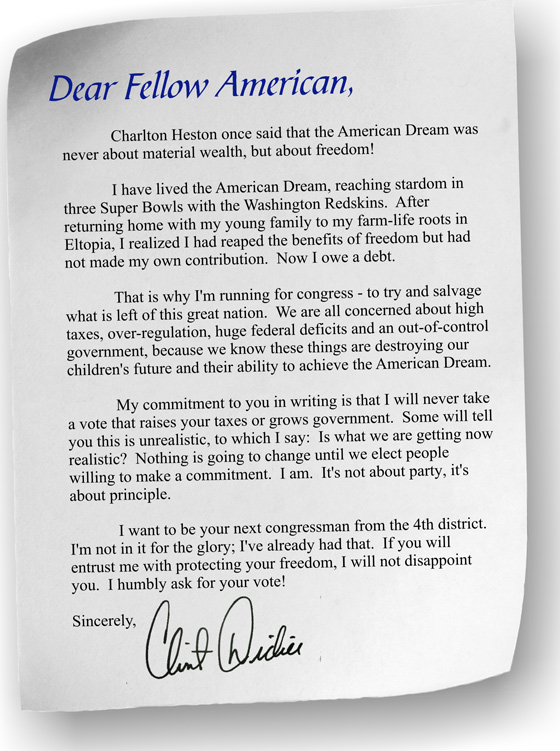 Dear Fellow American,
Charlton Heston once said that the American Dream was
never about material wealth, but about freedom!
I have lived the American Dream, reaching stardom in
three Super Bowls with the Washington Redskins.  After
returning home with my young family to my farm-life roots in
Eltopia, I realized I had reaped the benefits of freedom but had
not made my own contribution.  Now I owe a debt.
That is why I'm running for congress - to try and salvage
what is left of this great nation.  We are all concerned about high
taxes, over-regulation, huge federal deficits and an out-of-control
government, because we know these things are destroying our
children's future and their ability to achieve the American Dream.
My commitment to you in writing is that I will never take
a vote that raises your taxes or grows government.  Some will tell
you this is unrealistic, to which I say:  Is what we are getting now
realistic?  Nothing is going to change until we elect people
willing to make a commitment.  I am.  It's not about party, it's
about principle.
I want to be your next congressman from the 4th district.
I'm not in it for the glory; I've already had that.  If you will
entrust me with protecting your freedom, I will not disappoint
you.  I humbly ask for your vote!
Sincerely,
Clint Didier